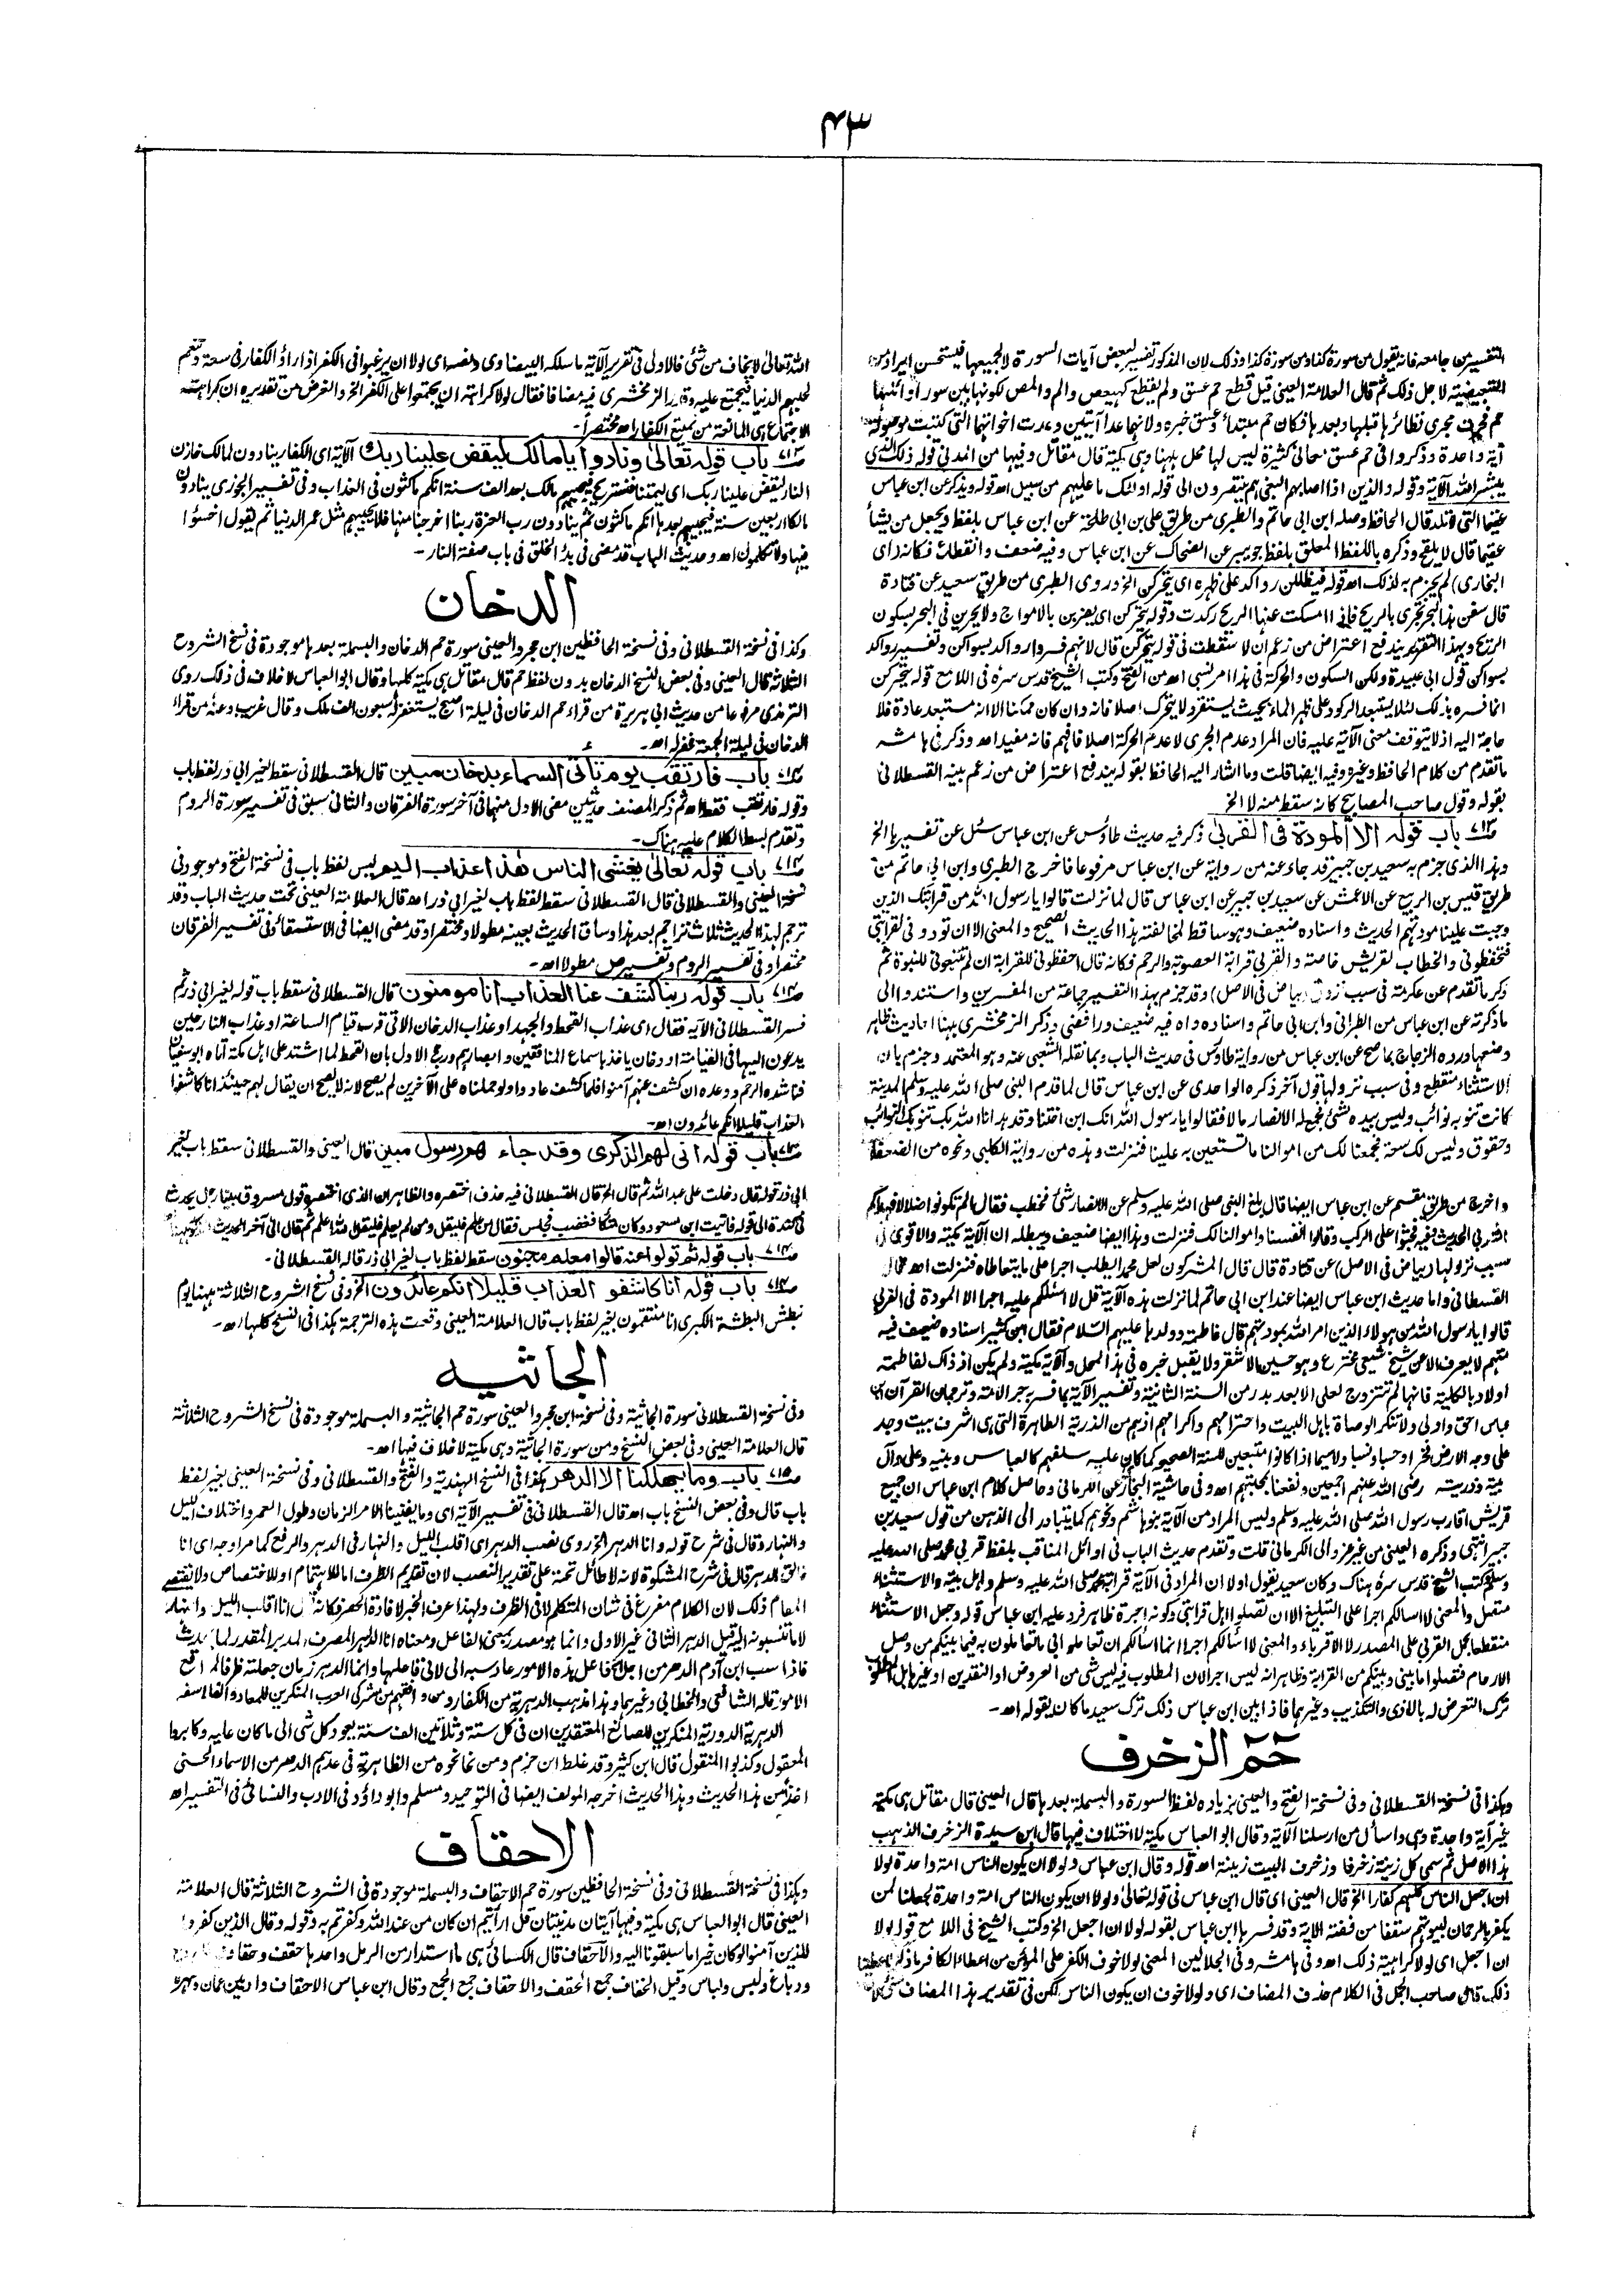 ۴۳
التفسير من جامعه فانه يقول من سورة كذا ومن سورة كذا وذلك لان المذكور تفسير لبعض آيات السورة لا لجميعها فيستحسن ايراد من
التبعيضية لاجل ذلك ثم قال العلامة العينى قيل قطع حم عسق ولم يقطع كهيعص والم والمص لكونها بين سور اوائلها
حم فجرت مجرى نظائرها قبلها وبعدها فكان حم مبتدأ وعسق خبره ولانهما عدا آيتين وعدت اخواتها التى كتبت موصولة
آية واحدة وذكروا فى حم عسق معانى كثيرة ليس لها محل ههنا وهى مكية قال مقاتل وفيها من المدنى قوله ذلك الذى
يبشر الله الآية وقوله والذين اذا اصابهم البغى هم ينتصرون الى قوله اولئك ما عليهم من سبيل اھ قوله ويذكر عن ابن عباس
عقيما التى لا تلد قال الحافظ وصله ابن ابى حاتم والطبرى من طريق على بن ابى طلحة عن ابن عباس بلفظ ويجعل من يشأ
عقيما قال لا يلقح وذكره باللفظ المعلق بلفظ جويبر عن الضحاك عن ابن عباس وفيه ضعف وانقطاع فكانه (اى
البخارى) لم يجزم به لذلك اھ قوله فيظللن رواكد على ظهره اى يتحركن الخ وروى الطبرى من طريق سعيد عن قتادة
قال سفن هذا البحر تجرى بالريح فاذا امسكت عنها الريح ركدت وقوله يتحركن اى يضربن بالامواج ولا يجرين فى البحر بسكون
الريح وبهذا التقرير يندفع اعتراض من زعم ان لا سقطت فى قوله يتحركن قال لانهم فسروا رواكد بسواكن وتفسير رواكد
بسواكن قول ابى عبيدة ولكن السكون والحركة فى هذا امر نسبى اھ من الفتح وكتب الشيخ قدس سره فى اللامع قوله يتحركن
انما فسره بذلك لئلا يستبعد الركود على ظهر الماء بحيث يستقر ولا يتحرك اصلا فانه وان كان ممكنا الا انه مستبعد عادة فلا
حاجة اليه اذ لا يتوقف معنى الآية عليه فان المراد عدم الجرى لا عدم الحركة اصلا فافهم فانه مفيد اھ وذكر فى هامشه
ما تقدم من كلام الحافظ وغيره وفيه ايضا قلت وما اشار اليه الحافظ بقوله يندفع اعتراض من زعم بينه القسطلانى
بقوله وقول صاحب المصابيح كانه سقط منه لا الخ
باب قوله الا المودة فى القربى ذكر فيه حديث طاؤس عن ابن عباس سئل عن تفسيرها الخ
وهذا الذى جزم به سعيد بن جبير قد جاء عنه من روايته عن ابن عباس مرفوعا فاخرج الطبرى وابن ابى حاتم من
طريق قيس بن الربيع عن الاعمش عن سعيد بن جبير عن ابن عباس قال لما نزلت قالوا يا رسول الله من قرابتك الذين
وجبت علينا مودتهم الحديث واسناده ضعيف وهو ساقط لمخالفته هذا الحديث الصحيح والمعنى الا ان تودونى لقرابتى
فتحفظونى والخطاب لقريش خاصة والقربى قرابة العصوبة والرحم فكانه قال احفظونى للقرابة ان لم تتبعونى للنبوة ثم
ذكر ما تقدم عن عكرمة فى سبب نزول (بياض فى الاصل) وقد جزم بهذا التفسير جماعة من المفسرين واستندوا الى
ما ذكرته عن ابن عباس من الطبرانى وابن ابى حاتم واسناده واه فيه ضعيف ورافضى وذكر الزمخشرى ههنا احاديث ظاهر
وضعها ورده الزجاج بما صح عن ابن عباس من رواية طاؤس فى حديث الباب وبما نقله الشعبى عنه وهو المعتمد وجزم بان
الاستثناء منقطع وفى سبب نزولها قول آخر ذكره الواحدى عن ابن عباس قال لما قدم النبى صلى الله عليه وسلم المدينة
كانت تنوبه نوائب وليس بيده شئ فجمع له الانصار مالا فقالوا يا رسول الله انك ابن اختنا وقد هدانا الله بك تنوبك النوائب
وحقوق وليس لك سعة فجمعنا لك من اموالنا ما تستعين به علينا فنزلت وهذه من رواية الكلبى ونحوه من الضعفاء
واخرج من طريق مقسم عن ابن عباس ايضا قال بلغ النبى صلى الله عليه وسلم عن الانصار شئ فخطب فقال الم تكونوا ضلالا فهداكم
الله بى الحديث فيه فجثوا على الركب وقالوا انفسنا واموالنا لك فنزلت وهذا ايضا ضعيف ويبطله ان الآية مكية والاقوى فى
سبب نزولها (بياض فى الاصل) عن قتادة قال قال المشركون لعل محمدا يطلب اجرا على ما يتعاطاه فنزلت اھ قال
القسطلانى واما حديث ابن عباس ايضا عند ابن ابى حاتم لما نزلت هذه الآية قل لا اسئلكم عليه اجرا الا المودة فى القربى
قالوا يا رسول الله من هولاء الذين امر الله بمودتهم قال فاطمة وولدها عليهم السلام فقال ابن كثير اسناده ضعيف فيه
متهم لا يعرف الا عن شيخ شيعى مخترع وهو حسين الاشقر ولا يقبل خبره فى هذا المحل والآية مكية ولم يكن اذ ذاك لفاطمة
اولاد بالكلية فانها لم تتزوج لعلى الا بعد بدر من السنة الثانية وتفسير الآية بما فسر به حبر الامة وترجمان القرآن ابن
عباس احق واولى ولا تنكر الوصاة باهل البيت واحترامهم واكرامهم اذ هم من الذرية الطاهرة التى هى اشرف بيت وجد
على وجه الارض فخرا وحسبا ونسبا ولا سيما اذا كانوا متبعين للسنة الصحيحة كما كان عليه سلفهم كالعباس وبنيه وعلى وآل
بيته وذريته رضى الله عنهم اجمعين ونفعنا بمحبتهم اھ وفى حاشية البخارى عن الكرمانى وحاصل كلام ابن عباس ان جميع
قريش اقارب رسول الله صلى الله عليه وسلم وليس المراد من الآية بنو هاشم ونحوهم كما يتبادر الى الذهن من قول سعيد بن
جبير انتهى وذكره العينى من غير عزو الى الكرمانى قلت وتقدم حديث الباب فى اوائل المناقب بلفظ قربى محمد صلى الله عليه
وسلم وكتب الشيخ قدس سره هناك وكان سعيد يقول اولا ان المراد فى الآية قرابة محمد صلى الله عليه وسلم واهل بيته والاستثناء
متصل والمعنى لا اسالكم اجرا على التبليغ الا ان تصلوا اهل قرابتى وكونه اجرة ظاهر فرد عليه ابن عباس قوله وجعل الاستثناء
منقطعا بحمل القربى على المصدر لا الاقرباء والمعنى لا اسألكم اجرا انما اسألكم ان تعاملوا بى ما تعاملون به فيما بينكم من وصل
الارحام فتصلوا ما بينى وبينكم من القرابة وظاهر انه ليس اجرا لان المطلوب فيه ليس شئ من العروض او النقدين او غيرها بل المطلوب
ترك التعرض له بالاذى والتكذيب وغيرهما فاذا بين ابن عباس ذلك ترك سعيد ما كان يقوله اھ۔
حم الزخرف
وهكذا فى نسخة القسطلانى وفى نسخة الفتح والعينى بزيادة لفظ السورة والبسملة بعدها قال العينى قال مقاتل هى مكية
غير آية واحدة وهى واسأل من ارسلنا الآية وقال ابو العباس مكية لا اختلاف فيها قال ابن سيدة الزخرف الذهب
هذا الاصل ثم سمى كل زينة زخرفا وزخرف البيت زينته اھ قوله وقال ابن عباس ولولا ان يكون الناس امة واحدة لولا
ان اجعل الناس كلهم كفارا الخ قال العينى اى قال ابن عباس فى قوله تعالى ولولا ان يكون الناس امة واحدة لجعلنا لمن
يكفر بالرحمان لبيوتهم سقفا من فضة الآية وقد فسرها ابن عباس بقوله لولا ان اجعل الخ وكتب الشيخ فى اللامع قوله لولا
ان اجعل اى لولا كراهية ذلك اھ وفى هامشه وفى الجلالين المعنى لولا خوف الكفر على المؤمن من اعطاء الكافر ما ذكر لاعطيناه
ذلك قال صاحب الجمل فى الكلام حذف المضاف اى ولولا خوف ان يكون الناس لكن فى تقدير هذا المضاف شئ لان
الله تعالى لا يخاف من شئ فالاولى فى تقرير الآية ما سلكه البيضاوى ونصه اى لولا ان يرغبوا فى الكفر اذا راؤ الكفار فى سعة وتنعم
لحبهم الدنيا فيجتمع عليه وقدر الزمخشرى فيه مضافا فقال لولا كراهة ان يجتمعوا على الكفر الخ والغرض من تقديره ان كراهته
الاجتماع هى المانعة من تمتيع الكفار اھ مختصرا۔
باب قوله تعالى ونادوا يا مالك ليقض علينا ربك الآية اى الكفار ينادون لمالك خازن
النار ليقض علينا ربك اى ليمتنا فنستريح فيجيبهم مالك بعد الف سنة انكم ماكثون فى العذاب وفى تفسير الجوزى ينادون
مالكا اربعين سنة فيجيبهم بعدها انكم ماكثون ثم ينادون رب العزة ربنا اخرجنا منها فلا يجيبهم مثل عمر الدنيا ثم يقول اخسئوا
فيها ولا تكلمون اھ وحديث الباب قد مضى فى بدء الخلق فى باب صفة النار۔
الدخان
وكذا فى نسخة القسطلانى وفى نسخة الحافظين ابن حجر والعينى سورة حم الدخان والبسملة بعدها موجودة فى نسخ الشروح
الثلاثة قال العينى وفى بعض النسخ الدخان بدون لفظ حم قال مقاتل هى مكية كلها وقال ابو العباس لا خلاف فى ذلك روى
الترمذى مرفوعا من حديث ابى هريرة من قراء حم الدخان فى ليلة اصبح يستغفر له سبعون الف ملك وقال غريب وعنه من قراء
الدخان فى ليلة الجمعة غفر له اھ۔
باب فارتقب يوم تاتى السماء بدخان مبين قال القسطلانى سقط لغير ابى ذر لفظ باب
وقوله فارتقب فقط اھ ثم ذكر المصنف حديثين مضى الاول منهما فى آخر سورة الفرقان والثانى سبق فى تفسير سورة الروم
وتقدم بسط الكلام عليه هناك۔
باب قوله تعالى يغشى الناس هذا عذاب اليم ليس لفظ باب فى نسخة الفتح وموجود فى
نسخة العينى والقسطلانى قال القسطلانى سقط لفظ باب لغير ابى ذر اھ قال العلامة العينى تحت حديث الباب وقد
ترجم لهذا الحديث ثلاث تراجم بعد هذا وساق الحديث بعينه مطولا ومختصرا وقد مضى ايضا فى الاستسقاء وفى تفسير الفرقان
مختصرا وفى تفسير الروم وتفسير ص مطولا اھ۔
باب قوله ربنا اكشف عنا العذاب انا مومنون قال القسطلانى سقط باب قوله لغير ابى ذر ثم
فسر القسطلانى الآية فقال اى عذاب القحط والجهد او عذاب الدخان الآتى قرب قيام الساعة او عذاب النار حين
يدعون اليها فى القيامة او دخان ياخذ باسماع المنافقين وابصارهم ورجح الاول بان القحط لما اشتد على اهل مكة اتاه ابو سفيان
فناشده الرحم ووعده ان كشف عنهم آمنوا فلما كشف عادوا ولو حملناه على الآخرين لم يصح لانه لا يصح ان يقال لهم حينئذ انا كاشفوا
العذاب قليلا انكم عائدون اھ۔
باب قوله انى لهم الذكرى وقد جاءهم رسول مبين قال العينى والقسطلانى سقط باب لغير
ابى ذر قوله قال دخلت على عبد الله ثم قال الخ قال القسطلانى فيه حذف اختصره والظاهر ان الذى اختصره قول مسروق بينا رجل يحدث
فى كندة الى قوله فاتيت ابن مسعود وكان متكئا فغضب فجلس فقال من علم فليقل ومن لم يعلم فليقل الله اعلم ثم قال الى آخر الحديث
باب قوله ثم تولوا عنه قالوا معلم مجنون سقط لفظ باب لغير ابى ذر قاله القسطلانى۔
باب قوله انا كاشفو العذاب قليلا انكم عائدون الخ وفى نسخ الشروح الثلاثة ههنا يوم
نبطش البطشة الكبرى انا منتقمون بغير لفظ باب قال العلامة العينى وقعت هذه الترجمة هكذا فى النسخ كلها اھ۔
الجاثيه
وفى نسخة القسطلانى سورة الجاثية وفى نسخة ابن حجر والعينى سورة حم الجاثية والبسملة موجودة فى نسخ الشروح الثلاثة
قال العلامة العينى وفى بعض النسخ ومن سورة الجاثية وهى مكية لا خلاف فيها اھ۔
باب وما يهلكنا الا الدهر هكذا فى النسخ الهندية والفتح والقسطلانى وفى نسخة العينى بغير لفظ
باب قال وفى بعض النسخ باب اھ قال القسطلانى فى تفسير الآية اى وما يفنينا الا مر الزمان وطول العمر واختلاف الليل
والنهار وقال فى شرح قوله وانا الدهر الخ روى بنصب الدهر اى اقلب الليل والنهار فى الدهر والرفع كما مر اوجه اى انا
خالق الدهر قال فى شرح المشكوة لانه لا طائل تحته على تقدير النصب لان تقديم الظرف اما للاهتمام او للاختصاص ولا يقتضى
المقام ذلك لان الكلام مفرغ فى شان المتكلم لا فى الظرف ولهذا عرف الخبر لافادة الحصر فكانه قال انا اقلب الليل والنهار
لا ما تنسبونه اليه وقيل الدهر الثانى غير الاولى وانما هو مصدر بمعنى الفاعل ومعناه انا الدهر المصرف المدبر المقدر لما يحدث
فاذا سب ابن آدم الدهر من اجل انه فاعل هذه الامور عاد سبه الى لانى فاعلها وانما الدهر زمان جعلته ظرفا لمواقع
الامور قاله الشافعى والخطابى وغيرهما وهذا مذهب الدهرية من الكفار ومن وافقهم من مشركى العرب المنكرين للمعاد والفلاسفه
الدهرية الدورية المنكرين للصانع المعتقدين ان فى كل ستة وثلاثين الف سنة يعود كل شئ الى ما كان عليه وكابروا
المعقول وكذبوا المنقول قال ابن كثير وقد غلط ابن حزم ومن نحا نحوه من الظاهرية فى عدهم الدهر من الاسماء الحسنى
اخذا من هذا الحديث وهذا الحديث اخرجه المولف ايضا فى التوحيد ومسلم وابو داؤد فى الادب والنسائى فى التفسير اھ
الاحقاف
وهكذا فى نسخة القسطلانى وفى نسخة الحافظين سورة حم الاحقاف والبسملة موجودة فى الشروح الثلاثة قال العلامة
العينى قال ابو العباس هى مكية وفيها آيتان مدنيتان قل ارأيتم ان كان من عند الله وكفرتم به وقوله وقال الذين كفروا
للذين آمنوا لو كان خيرا ما سبقونا اليه والاحقاف قال الكسائى هى ما استدار من الرمل واحدها حقف وحقاف
ودباغ ولبس ولباس وقيل الحقاف جمع الحقف والاحقاف جمع الجمع وقال ابن عباس الاحقاف واد بين عمان ومهرة